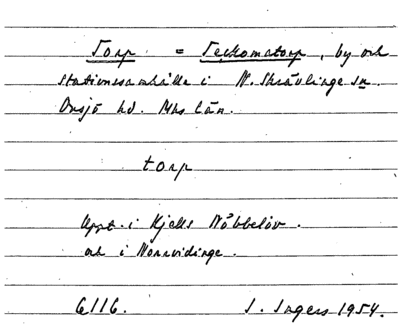 Torp = Teckomatorp, by och
stationssamhälle i N. Skrävlinge sn
Onsjö hd. Mhs län.
torp
Uppt. i Kjells Nöbbelöv.
och i Norrvidinge.
6116. I. Ingers 1954.